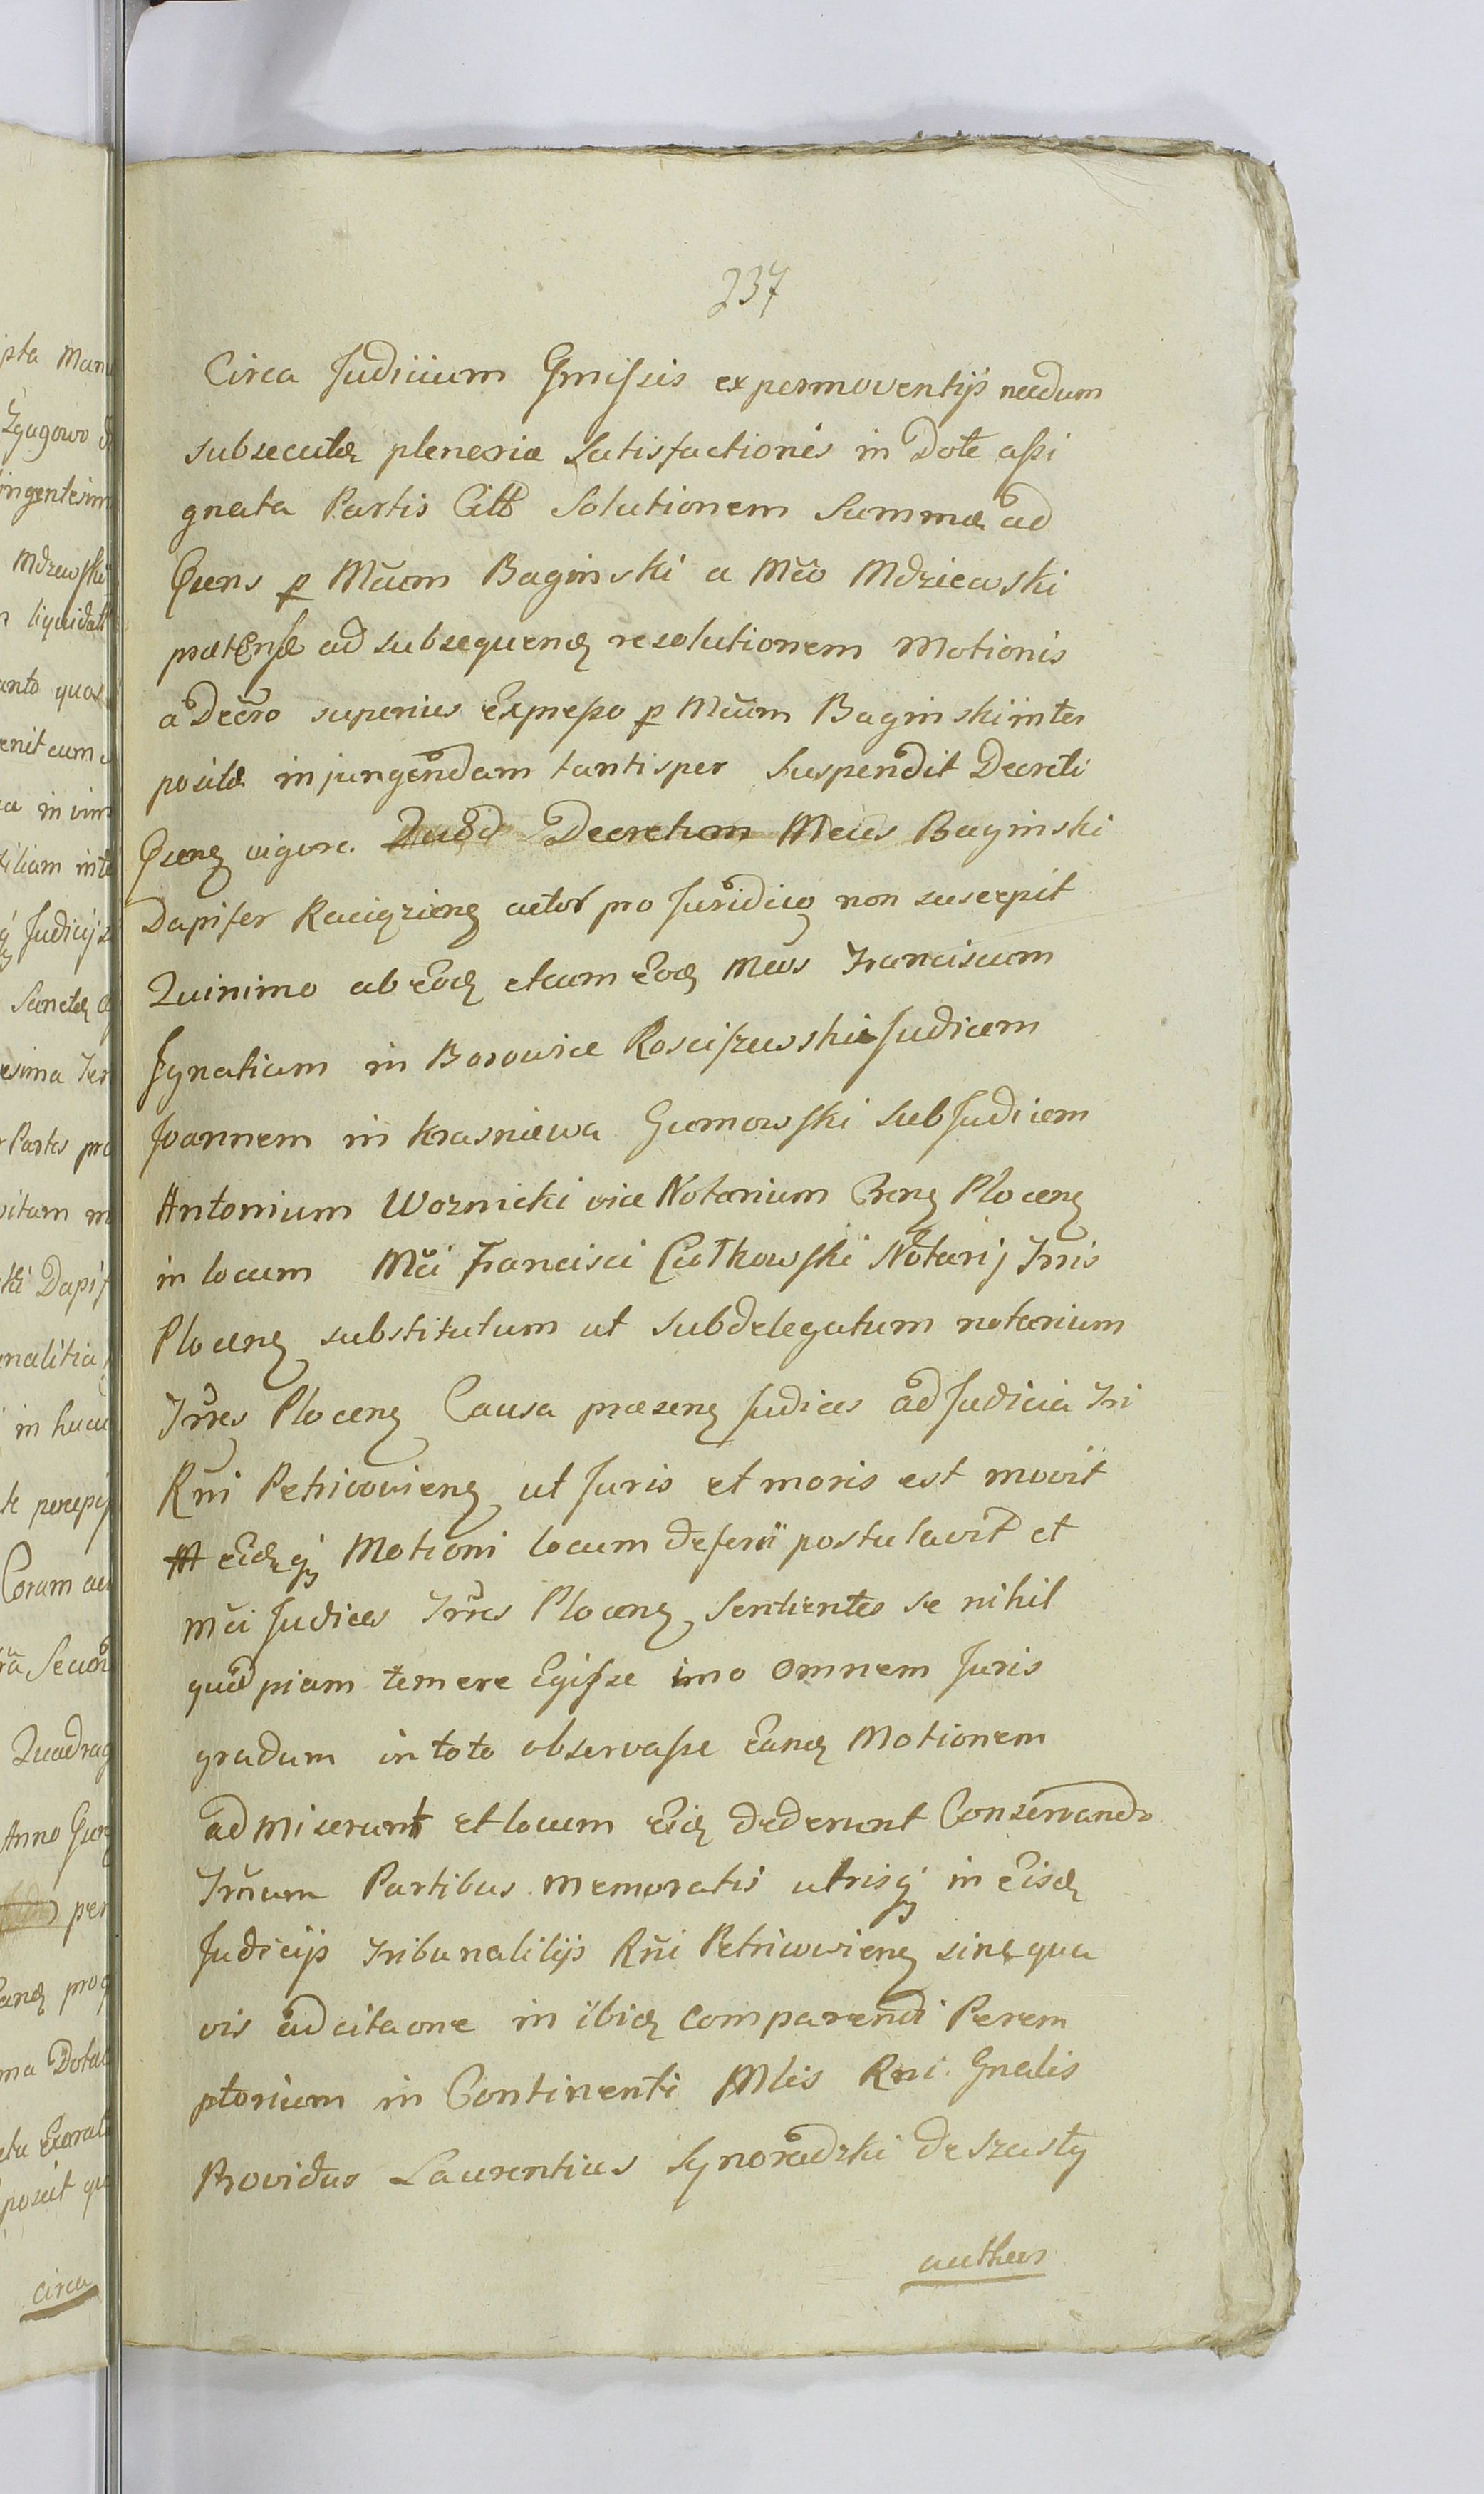 237
Circa Judicium Gmissis ex permoventijs necdum
subsecutæ pleneriæ Satisfactionis in Dote assi
gnata Partis Citt Solutionem Summæ ad
Præns p Mcum Baginski a Mco Mdziewski
prætensæ ad subsequeng resolutionem Motionis
a Decro superius Expresso p Mcum Baginski inter
positæ injungendam tantisper Suspendit Decreti
vigore. Decretum Mcus Baginski
Dapifer Raciązieng actor pro Juridico non suscepit
Quinimo ab Eod et cum Eod Mcos Franciscum
Ignatium in Borowice Rosciszewski Judicem
Joannem in Krasniewa Gumowski SubJudicem
Antonium Woznicki vice Notarium Ploceng
in locum Mci Francisci Ciołkowski Notarij Trris
Ploceng substitutum ut subdelegatum notarium
Trres Ploceng Causæ præseng Judices ad Judicia Tri
Rni Petricovieng ut Juris et moris est movit
eidq Motioni locum deferri postulavit et
Mci Judices Trres Ploceng Sentientes se nihil
quid piam temere Egisse imo omnem Juris
gradum in toto observasse Eand Motionem
admiserunt et locum Eid dederunt Conservando
Trmum Partibus memoratis utrisq in Eisd
Judicijs Tribunalitijs Rni Petricovieng sine qua
vis adcitaone in ibid comparendi Perem
ptorium in Continenti Mlis Rni Gnalis
Providus Laurentius Synoradzki de Szusty
authen
ipta Man
Zgagowo
ingentesim
Mdzewski
liquidat
anto quas
enit cum
in vim
Judicij
Sanctæ
esima Ter
Partes pro
vitam m
Dapif
nalitia
in hucu
te percepis
Coram
Quadrag
Anno
per
Eand
ma Dotal
posuit
circa